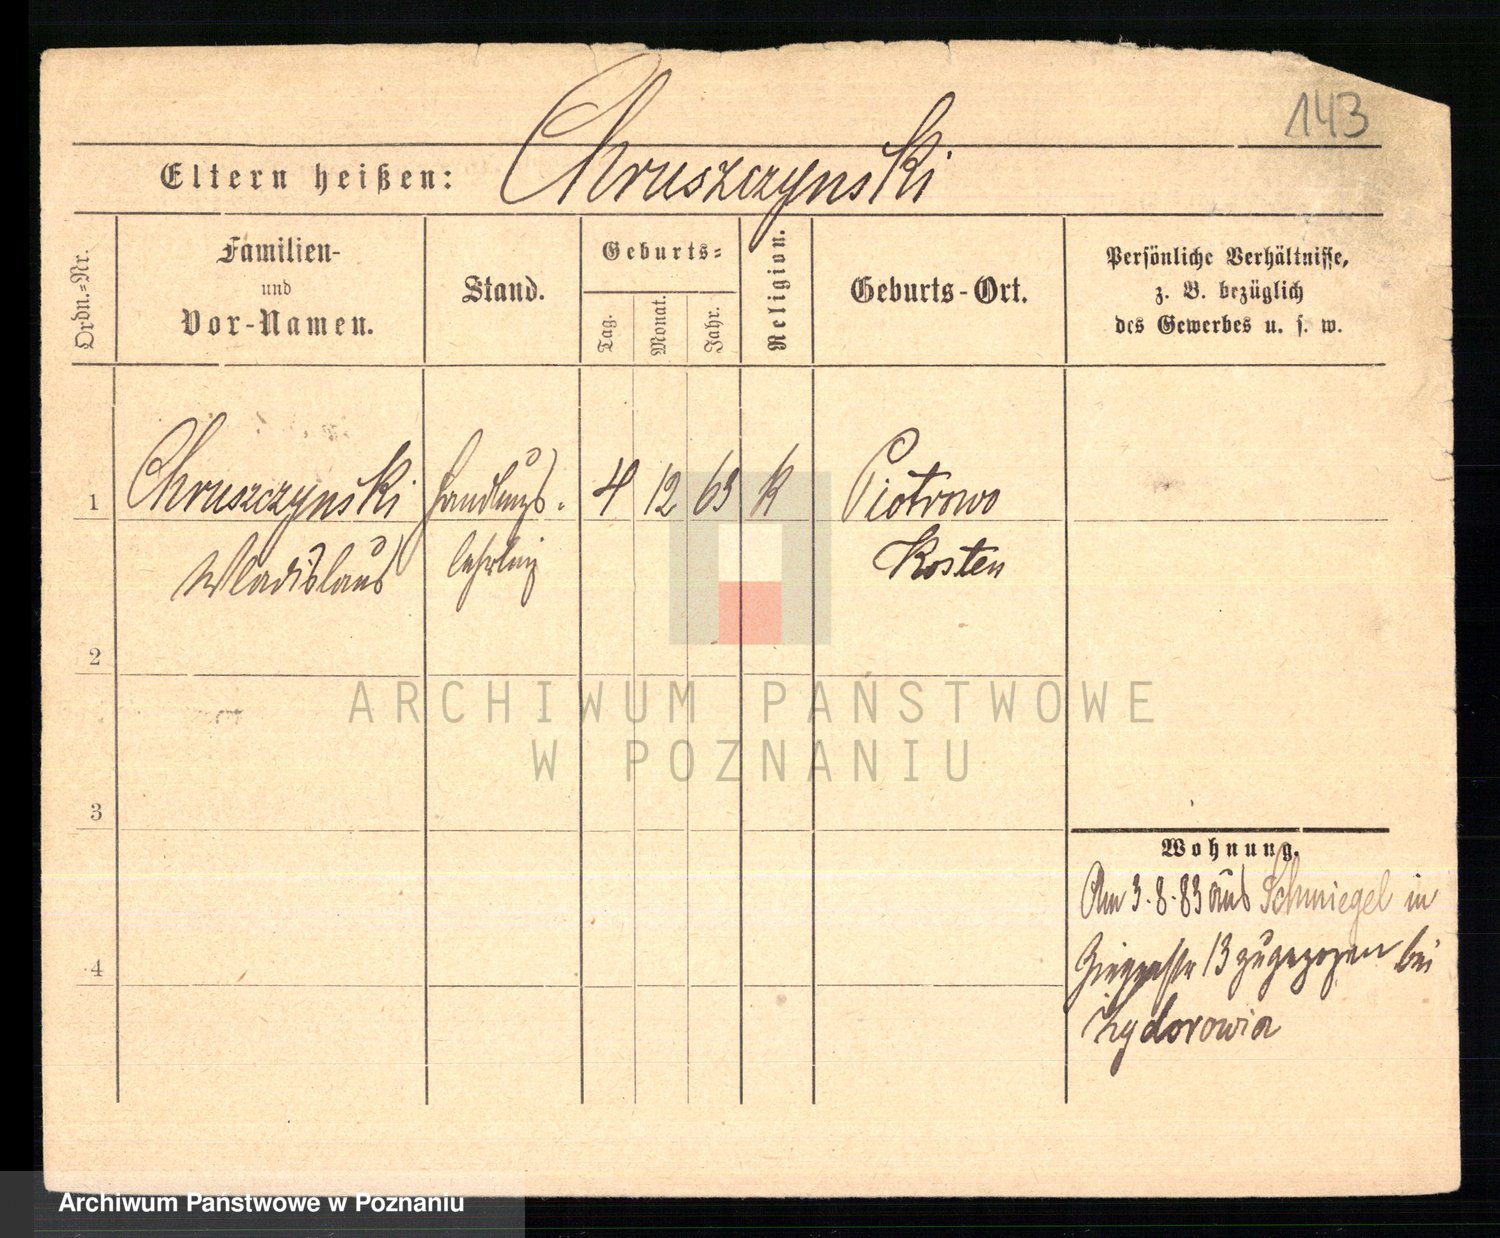 143
Eltern heißen: Chruszczynski
Ordn.-Nr.
Familien-
und
Vor-Namen.
Stand.
Geburts-
Tag.
Monat.
Jahr.
Religion.
Geburts-Ort.
Persönliche Verhältnisse,
z. B. bezüglich
des Gewerbes u. s. w.
1 Chruszczynski Handlungs- 4 12 63 k Piotrowo
Wladislaus lehrling Kosten
2
3
4
Wohnung.
Am 3.8.83 aus Schmiegel in
13 zugezogen bei
ARCHIWUM PAŃSTWOWE
W POZNANIU
Archiwum Państwowe w Poznaniu